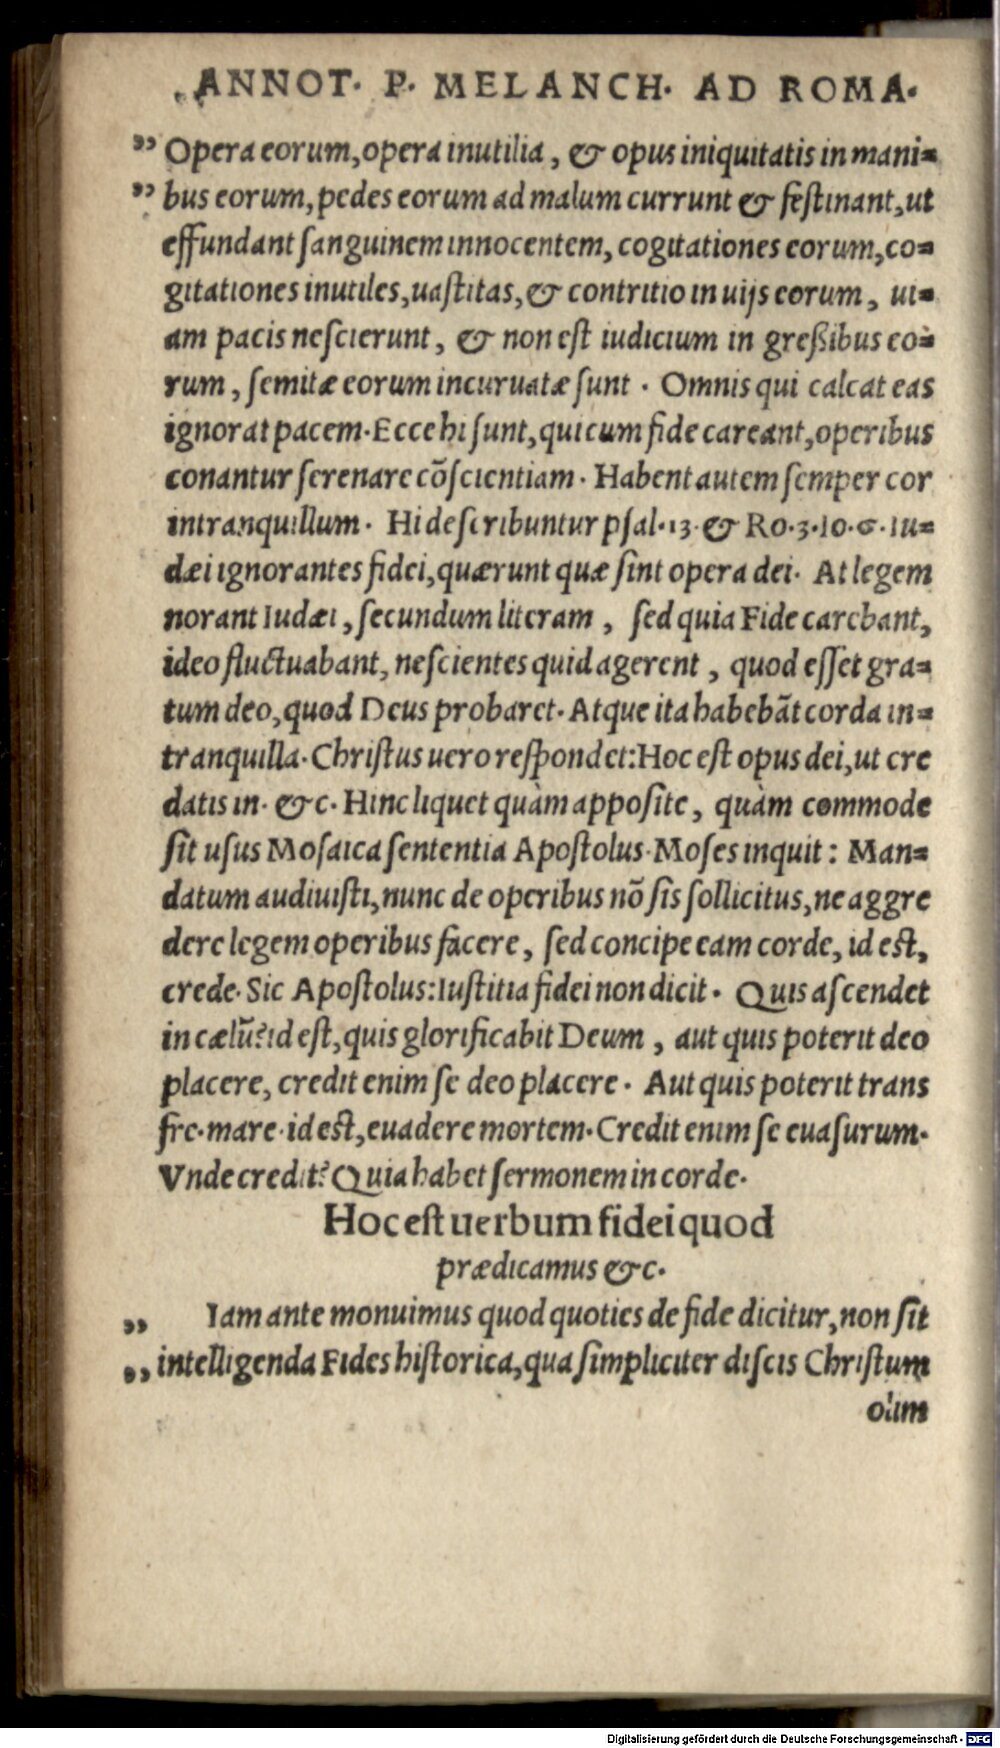 ANNOT. P. MELANCH. AD ROMA.
„ Opera eorum, opera inutilia, & opus iniquitatis in mani=
„ bus eorum, pedes eorum ad malum currunt & feſtinant, ut
effundant ſanguinem innocentem, cogitationes eorum, co=
gitationes inutiles, uaſtitas, & contritio in uijs eorum, ui=
am pacis neſcierunt, & non eſt iudicium in greßibus eo=
rum, ſemitæ eorum incuruatæ ſunt. Omnis qui calcat eas
ignorat pacem. Ecce hi ſunt, qui cum fide careant, operibus
conantur ſerenare cõſcientiam. Habent autem ſemper cor
intranquillum. Hi deſcribuntur pſal. 13. & Ro. 3. Io. 6. Iu=
dæi ignorantes fidei, quærunt quæ ſint opera dei. At legem
norant Iudæi, ſecundum literam, ſed quia Fide carebant,
ideo fluctuabant, neſcientes quid agerent, quod eſſet gra=
tum deo, quod Deus probaret. Atque ita habebãt corda in=
tranquilla. Chriſtus uero reſpondet: Hoc eſt opus dei, ut cre
datis in. &c. Hinc liquet quàm appoſite, quàm commode
ſit uſus Moſaica ſententia Apoſtolus. Moſes inquit: Man=
datum audiuiſti, nunc de operibus nõ ſis ſollicitus, ne aggre
dere legem operibus facere, ſed concipe eam corde, id eſt,
crede. Sic Apoſtolus: Iuſtitia fidei non dicit. Quis aſcendet
in cælũ? id eſt, quis glorificabit Deum, aut quis poterit deo
placere, credit enim ſe deo placere. Aut quis poterit trans
fre. mare. id eſt, euadere mortem. Credit enim ſe euaſurum.
Vnde credit? Quia habet ſermonem in corde.
Hoc eſt uerbum fidei quod
prædicamus &c.
„ Iam ante monuimus quod quoties de fide dicitur, non ſit
„ intelligenda Fides hiſtorica, qua ſimpliciter diſcis Chriſtum
olim
Digitalisierung gefördert durch die Deutsche Forschungsgemeinschaft - DFG